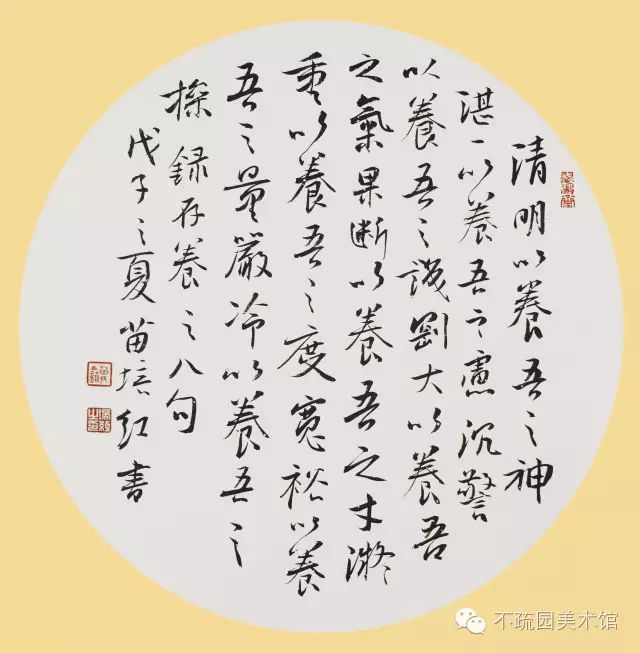 清明以養吾之神
湛一以養吾之慮沉警
以養吾之識剛大以養吾
之氣果斷以養吾之才凝
重以養吾之度寬裕以養
吾之量嚴冷以養吾之
操録存養之八句
戊子之夏苗培红書
不疏园美术馆